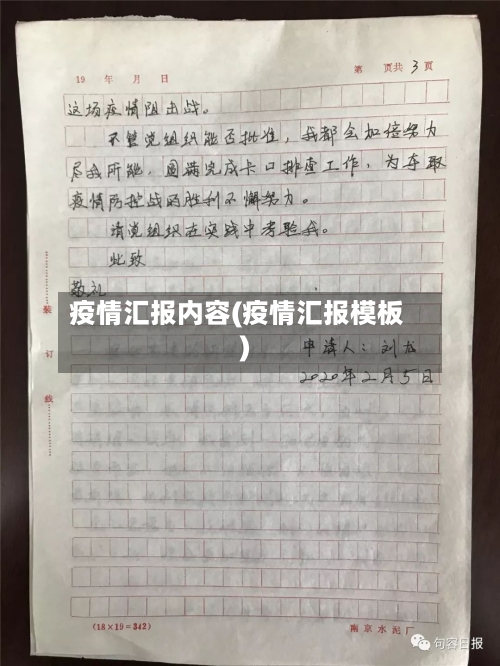 19 年 月 日 第 页共 3 页
这场疫情阻击战。
不管党组织能否批准，我都会加倍努力
尽我所能，圆满完成卡口排查工作，为夺取
疫情防控战的胜利不懈努力。
请党组织在实践中考验我。
此致
敬礼
疫情汇报内容(疫情汇报模板
)
申请人：刘龙
2020年2月5日
装
订
线
(18×19=342) 南京水泥厂
句容日报